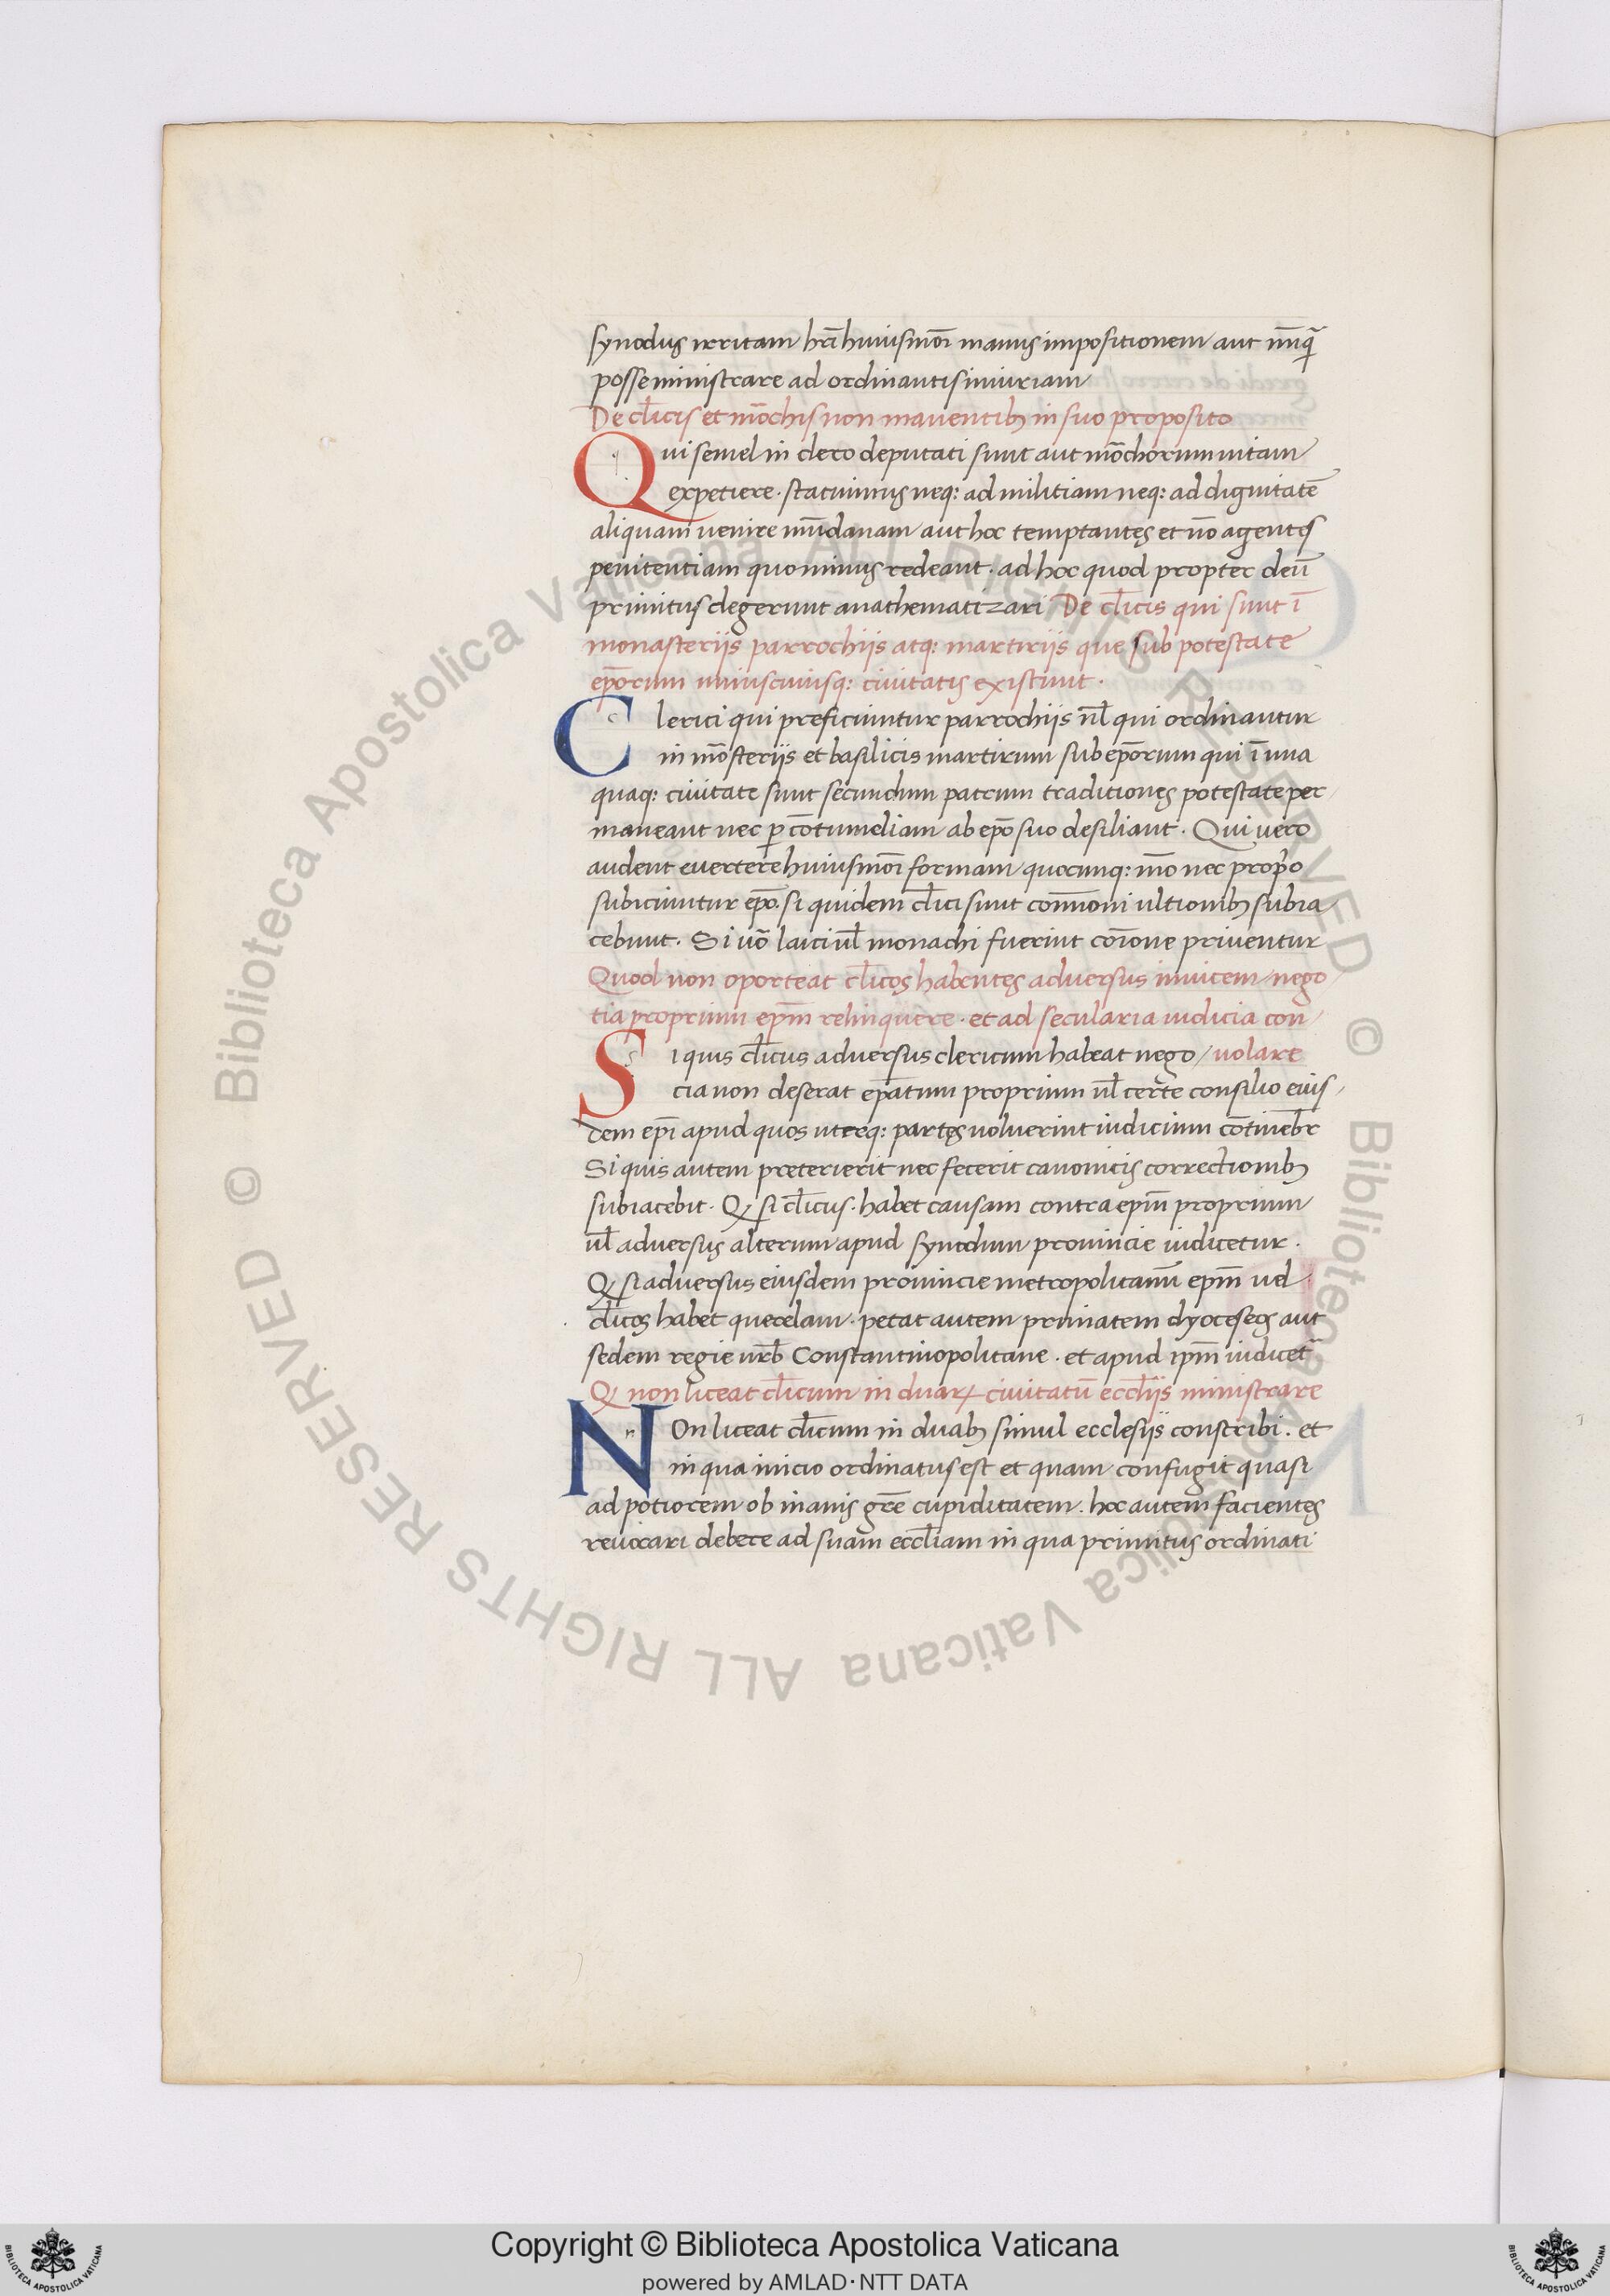 synodus irritam hr̄i huiusmōi manus impositionem aut nūnq̄
posse ministrare ad ordinantis iniuriam
De cl̄icis et mōchis non manentib; in suo proposito
Qui semel in clero deputati sunt aut mōchorum uitam
expetiere · statuimus neq: ad militiam neq: ad dignitatē
aliquam uenire mūdanam aut hoc temptantes et nō agentes
penitentiam quominus redeant · ad hoc quod propter deū
primitus degerunt anathematizari De cl̄icis qui sunt ī
monasteriis parrochiis atq: martiriis que sub potestate
ep̄orum uniuscuiusq: ciuitatis existunt ·
Clerici qui preficiuntur parrochiis ul̄ qui ordinantur
in mōsteriis et basilicis martirum sub ep̄orum qui ī una
quaq: ciuitate sunt secundum patrum traditiones potestate per
maneant nec p̱ cōtumeliam ab ep̄o suo desiliant · Qui uero
audent euertere huiusmōi formam quocunq: mō nec prop̄o
subiciuntur ep̄o. si quidem cl̄ici sunt cōnnoni ultionib; subia
cebunt · Si uō laici ul̄ monachi fuerint cōione priuentur
Quod non oporteat cl̄icos habentes aduersus inuicem nego
tia proprium ep̄m relinquere · et ad secularia iudicia con
Si quis cl̄icus aduersus clericum habeat nego / uolare
cia non deserat ep̄atum proprium ul̄ certe consilio eius
dem ep̄i apud quos utreq: partes uoluerint iudicium cōtinebr̄
Si quis autem preterierit nec fecerit canonicis correctionib;
subiacebit · Q̨ si cl̄icus · habet causam contra ep̄m proprium
ul̄ aduersus alterum apud synodum prouincie iudicetur ·
Q̨ si aduersus eiusdem prouincie metropolitanū ep̄m uel
cl̄icos habet querelam · petat autem primatem dyoceseos aut
sedem regie urb̄ Constantinopolitane · et apud ip̄m iudicet̄
Q̨ non liceat cl̄icum in duaꝝ ciuitatū eccl̄iis ministrare
NOn liceat cl̄icum in duab; simul ecclesiis conscribi · et
in qua inicio ordinatus est et quam confugit quasi
ad potiorem ob inanis gl̄e cupiditatem · hoc autem facientes
reuocari debere ad suam eccl̄iam in qua primitus ordinati
© Biblioteca Apostolica Vaticana ALL RIGHTS RESERVED © Biblioteca Apostolica Vaticana ALL RIGHTS RESERVED
Copyright © Biblioteca Apostolica Vaticana
powered by AMLAD·NTT DATA
BIBLIOTECA APOSTOLICA VATICANA
BIBLIOTECA APOSTOLICA VATICANA